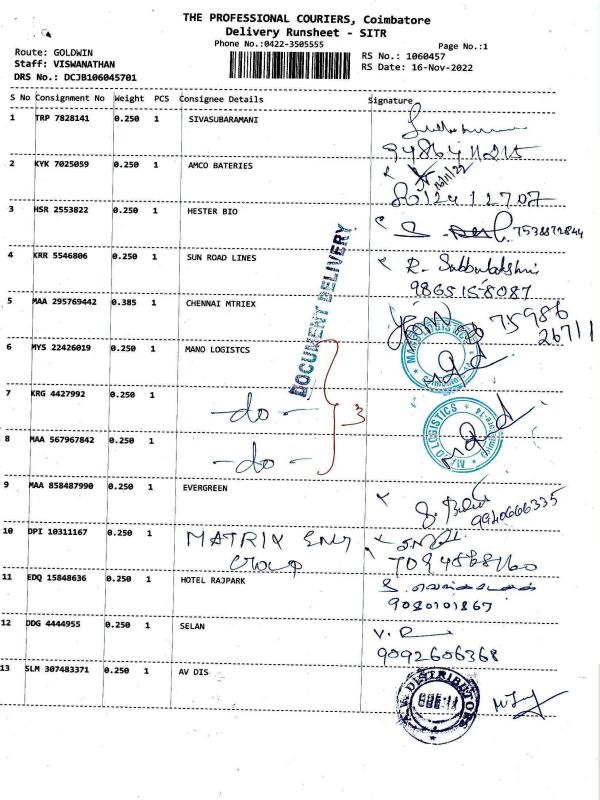 THE PROFESSIONAL COURIERS, Coimbatore
Delivery Runsheet - SITR
Phone No.:0422-3505555
Page No.:1
Route: GOLDWIN
Staff: VISWANATHAN
DRS No.: DCJB106045701
RS No.: 1060457
RS Date: 16-Nov-2022
S No Consignment No Weight PCS Consignee Details Signature
1 TRP 7828141 0.250 1 SIVASUBARAMANI
2 KYK 7025059 0.250 1 AMCO BATERIES
16/11/22
3 HSR 2553822 0.250 1 HESTER BIO
4 KRR 5546806 0.250 1 SUN ROAD LINES R. Subbulakshmi
9865158087
5 MAA 295769442 0.385 1 CHENNAI MTRIEX 75986
26711
DOCUMENT DELIVERY
6 MYS 22426019 0.250 1 MANO LOGISTCS
7 KRG 4427992 0.250 1 -do-
3
8 MAA 567967842 0.250 1 -do-
LOGISTICS
9 MAA 858487990 0.250 1 EVERGREEN
9940666335
10 DPI 10311167 0.250 1 MATRIX
11 EDQ 15848636 0.250 1 HOTEL RAJPARK
9080101867
12 DDG 4444955 0.250 1 SELAN V. R
9092606368
13 SLM 307483371 0.250 1 AV DIS
DISTRIBUTORS